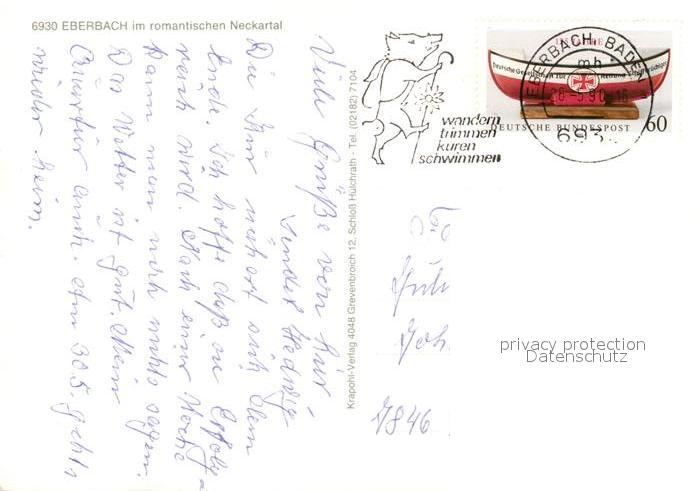 6930 EBERBACH im romantischen Neckartal
Viele Grüße von hier
sendet Hedwig
Die Kur nähert sich dem
Ende. Ich hoffe daß ein Erfolg
sein wird. Nach einer Woche
kann man noch nichts sagen.
Das Wetter ist gut. Mein
auch. Am 30.5. geht's
wieder heim.
Krapohl-Verlag 4048 Grevenbroich 12, Schloß Hülchrath - Tel. (02182) 7104
wandern
trimmen
kuren
schwimmen
EBERBACH, BADEN
mh
28-5.90-16
693
Deutsche Gesellschaft zur Rettung Schiffbrüchiger
DEUTSCHE BUNDESPOST 60
Joh.
7846
privacy protection
Datenschutz